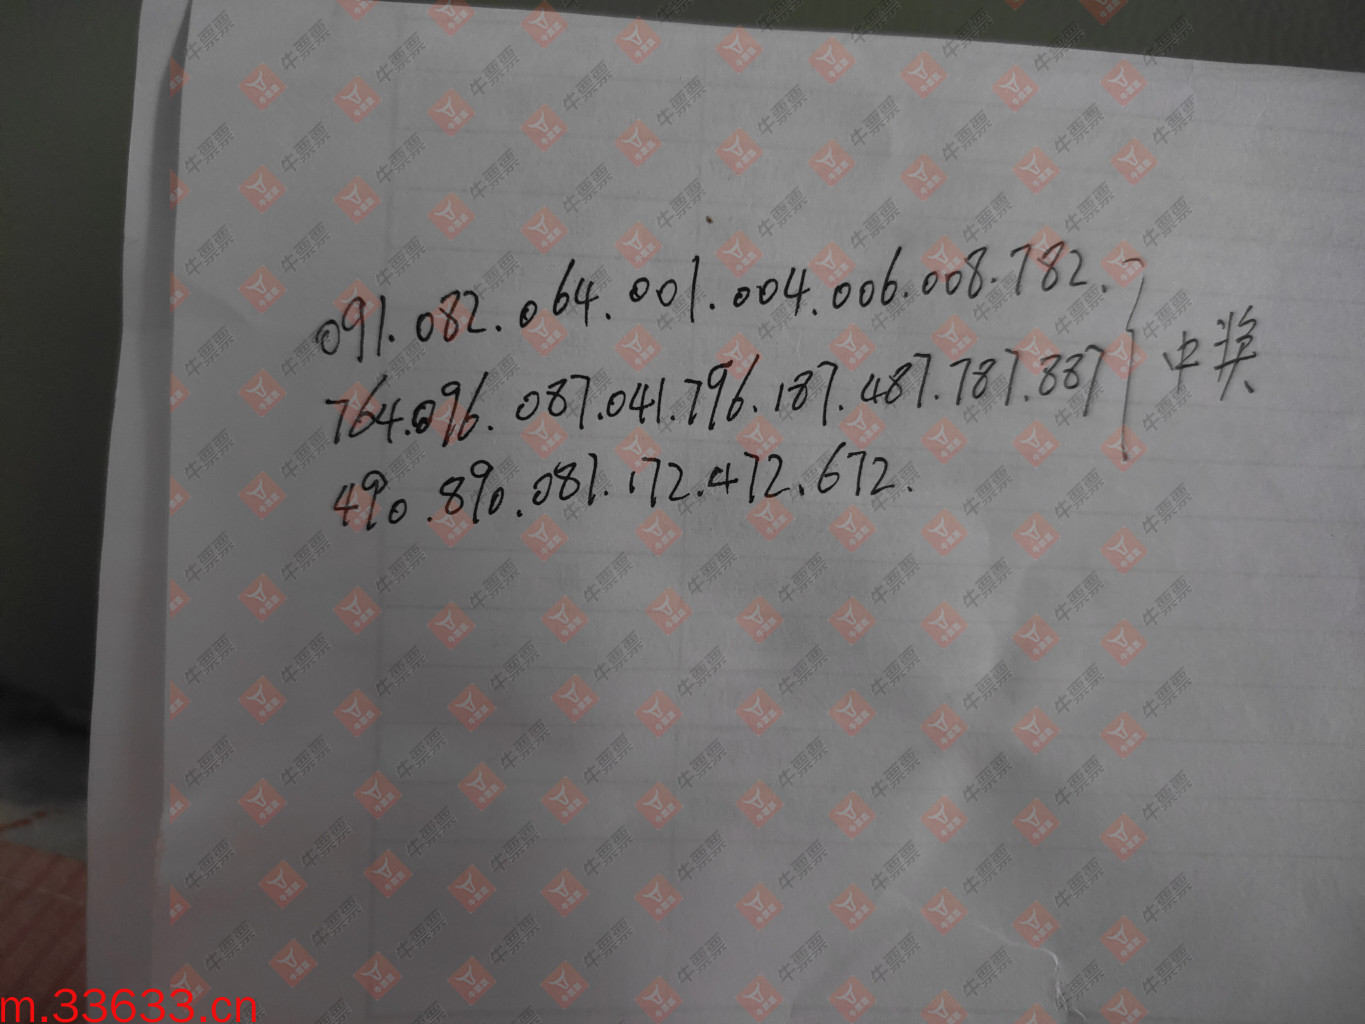 091.082.064.001.004.006.008.782.
764.096.087.041.796.187.487.787.887
490.890.081.172.472.672.
中奖
牛票票
m.33633.cn